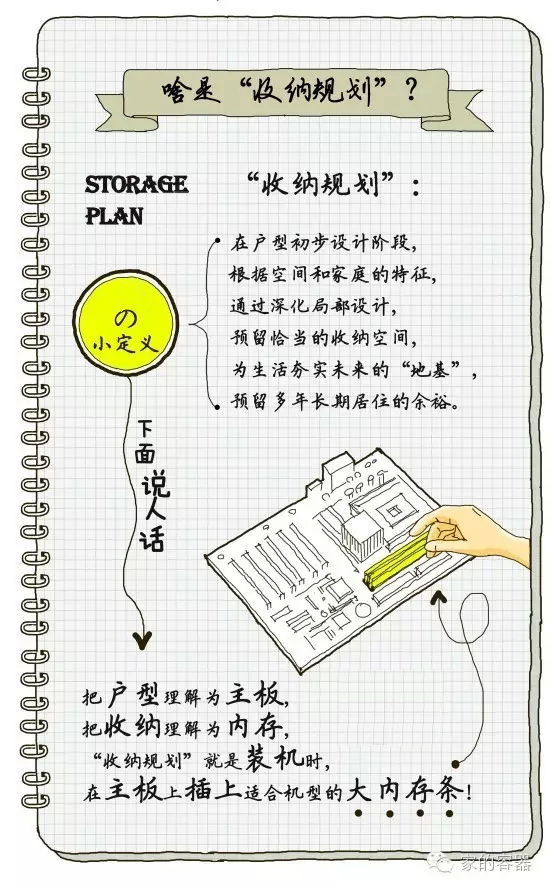 啥是“收纳规划”？
STORAGE PLAN
“收纳规划”：
の
小定义
在户型初步设计阶段，
根据空间和家庭的特征，
通过深化局部设计，
预留恰当的收纳空间，
为生活夯实未来的“地基”，
预留多年长期居住的余裕。
下面说人话
把户型理解为主板，
把收纳理解为内存，
“收纳规划”就是装机时，
在主板上插上适合机型的大内存条！
家的容器